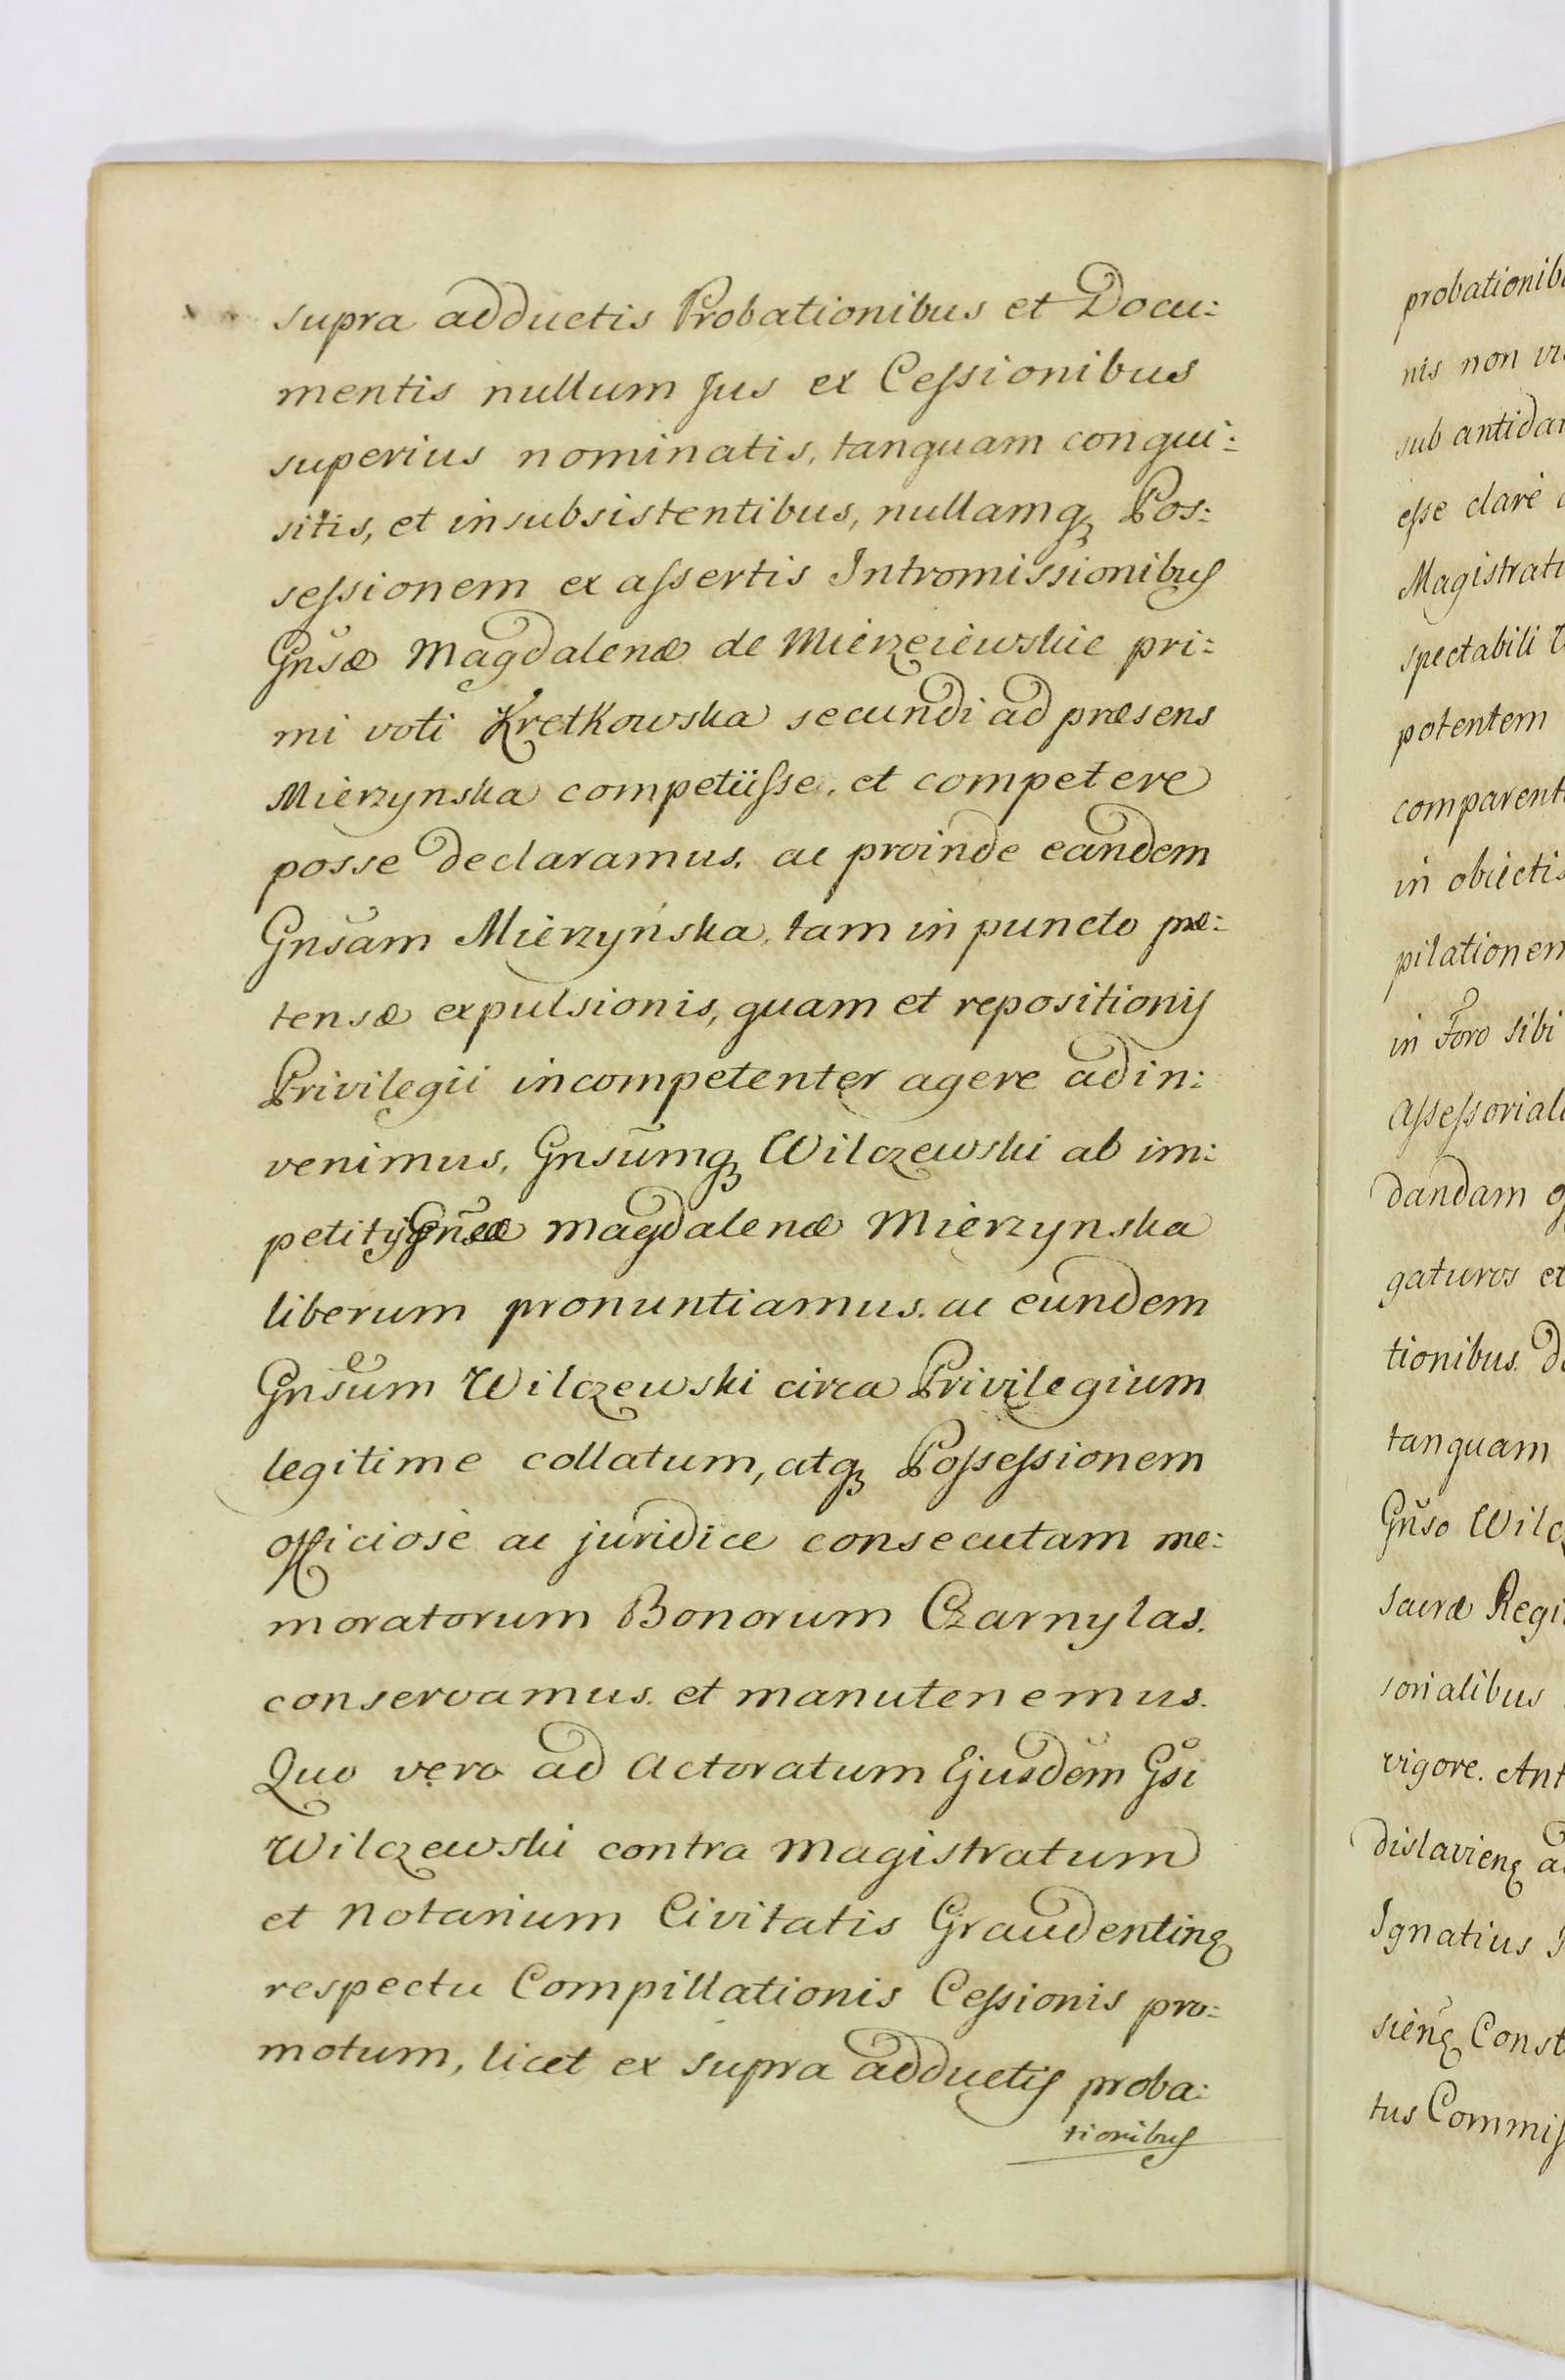 supra adductis Probationibus et Docu:
mentis nullum Jus ex Cessionibus
superius nominatis, tanquam conqui:
sitis, et insubsistentibus, nullamq3 Pos:
sessionem ex assertis Intromissionibus
Gnsæ Magdalenæ de Mierzeiewskie pri:
mi voti Kretkowska secundi ad præsens
Mierzynska competiisse, et competere
posse declaramus, ac proinde eandem
Gnsam Mierzyńska, tam in puncto præ:
tensæ expulsionis, quam et repositionis
Privilegii incompetenter agere adin:
venimus, Gnsumq3 Wilczewski ab im:
petitijs Gnsæ Magdalenæ Mierzynska
liberum pronuntiamus, ac eundem
Gnsum Wilczewski circa Privilegium
legitime collatum, atq3 Possessionem
officiosè ac juridice consecutam me:
moratorum Bonorum Czarnylas.
conservamus, et manutenemus.
Quo vero ad Actoratum Ejusdem Gsi
Wilczewski contra Magistratum
et Notarium Civitatis Graudentinq
respectu Compillationis Cessionis pro:
motum, licet ex supra adductis proba:
tionibus
probationib
nis non
sub antida
esse clarè
Magistrat
spectabili
potentem
comparent
in obiectis
pilationem
in Foro sibi
Assessorial
dandam
gaturos et
tionibus
tanquam
Gnso Wilc
Sacræ Regi
sorialibus
vigore. Ant
dislavienq
Ignatius
sienq Const
tus Commis